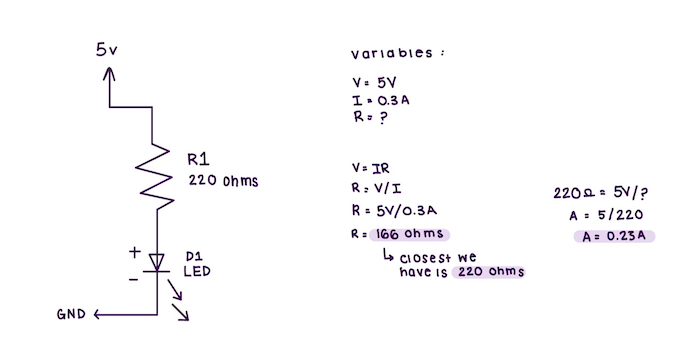 5v
R1
220 ohms
+
D1
LED
-
GND
variables :
V = 5V
I = 0.3A
R = ?
V = IR
R = V/I
R = 5V/0.3A
R = 166 ohms
↳ closest we
have is 220 ohms
220Ω = 5V/?
A = 5/220
A = 0.23A